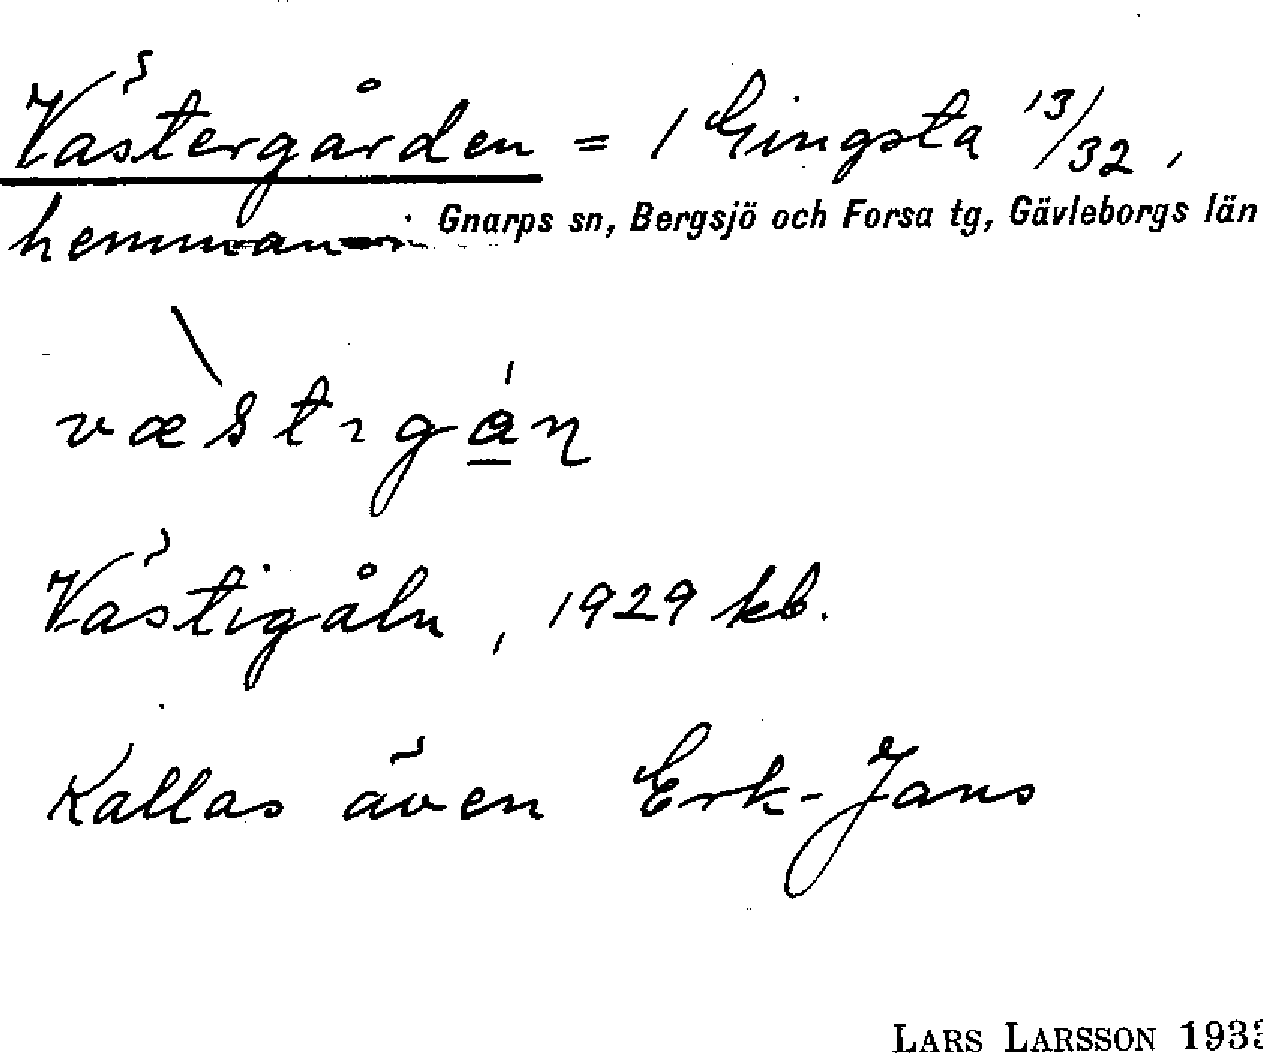 Västergården = 1 Gingsta 13/32,
hemman
Gnarps sn, Bergsjö och Forsa tg, Gävleborgs län
Västigåln, 1929 kb.
Kallas även Erk-Jans
LARS LARSSON 193